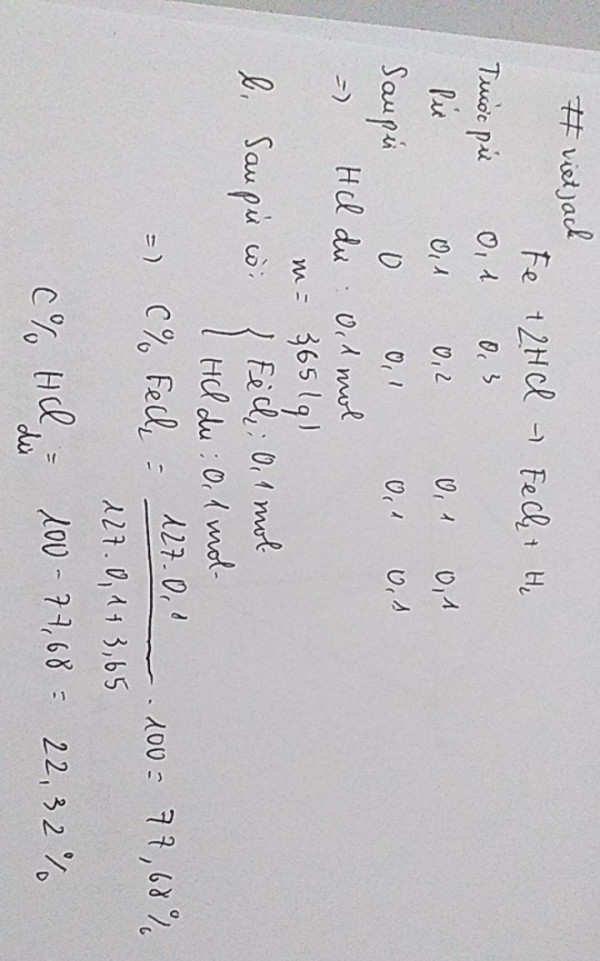 # vietjack
Fe + 2HCl → FeCl₂ + H₂
Trước pứ 0,1 0,3
Pứ 0,1 0,2 0,1 0,1
Sau pứ 0 0,1 0,1 0,1
=> HCl dư : 0,1 mol
m = 3,65 (g)
b, Sau pứ có: { FeCl₂ : 0,1 mol
HCl dư : 0,1 mol
=> C% FeCl₂ = 127. 0,1 / 127. 0,1 + 3,65 . 100 = 77,68 %
C% HCl dư = 100 - 77,68 = 22,32 %